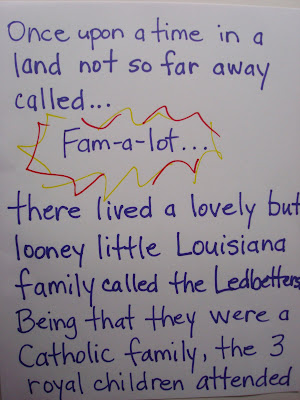 Once upon a time in a
land not so far away
called...
Fam-a-lot...
there lived a lovely but
looney little Louisiana
family called the Ledbetters
Being that they were a
Catholic family, the 3
royal children attended